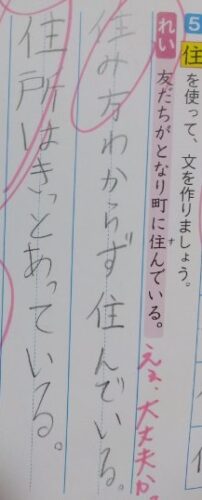 5
住を使って、文を作りましょう。
れい 友だちがとなり町に住んでいる。
す
ええ、大丈夫か
住み方わからず住んでいる。
住所はきっとあっている。